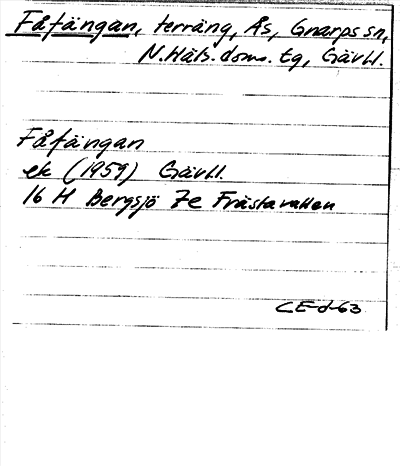 Fåfängan, terräng, Ås, Gnarps sn,
N. Häls. doms. tg, Gävl l.
Fåfängan
ek (1959) Gävl l.
16 H Bergsjö 7e Frästavallen
CE-d-63